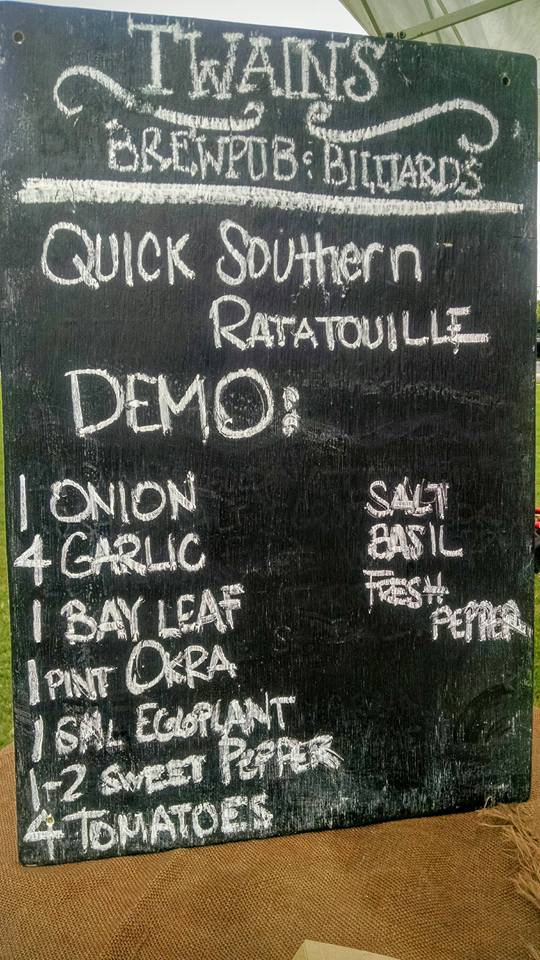 TWAINS
BREWPUB & BILLIARDS
QUICK Southern
RATATOUILLE
DEMO:
1 ONION
4 GARLIC
1 BAY LEAF
1 PINT OKRA
1 SML EGGPLANT
1-2 SWEET PEPPER
4 TOMATOES
SALT
BASIL
FRESH
PEPPER